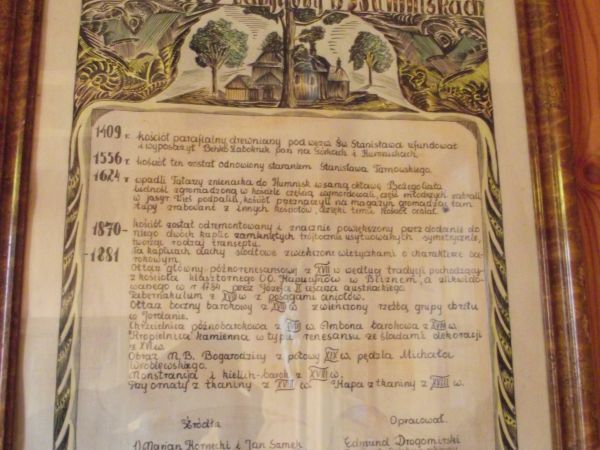 w Humniskach
1409 r. kościół parafialny drewniany pod wezw. Św. Stanisława ufundował
i wyposażył Beńko Żabokruk pan na Górkach i Humniskach.
1556 r. kościół ten został odnowiony staraniem Stanisława Tarnowskiego.
1624 r. wpadli Tatarzy znienacka do Humnisk w samą oktawę Bożego Ciała
ludność zgromadzoną w kościele częścią wymordowali, część młodszych zabrali
w jasyr. Wieś podpalili, kościół przeznaczyli na magazyn gromadząc tam
łupy zrabowane z innych kościołów, dzięki temu kościół ocalał.
1870- kościół został odremontowany i znacznie powiększony przez dodanie do
niego dwóch kaplic zamkniętych trójbocznie usytuowanych symetrycznie,
tworząc rodzaj transeptu.
-1881 Na kaplicach dachy siodłowe zwieńczone wieżyczkami o charakterze ba-
rokowym.
Ołtarz główny-późnorenesansowy z XVII w według tradycji pochodzący
z kościoła klasztornego OO. Kapucynów w Bliznem, a zlikwido-
wanego w r 1784 przez Józefa II cesarza austriackiego.
Tabernakulum z XVII w z posągami aniołów.
Ołtarz boczny barokowy z XVII w zwieńczony rzeźbą grupy chrztu
w Jordanie.
Chrzcielnica późnobarokowa z w. Ambona barokowa z XVIII w.
Kropielnica kamienna w typie renesansu ze śladami dekoracji
z XVI w.
Obraz N.M.B. Bogarodzicy z połowy XIX w, pędzla Michała
Wróblewskiego.
Monstrancja i kielich-barok z XVII w.
Trzy ornaty z tkaniny z XVIII w. Kapa z tkaniny z XVIII w.
Źródła
Opracował
1) Marian Kornecki i Jan Samek
Edmund Drogomirski